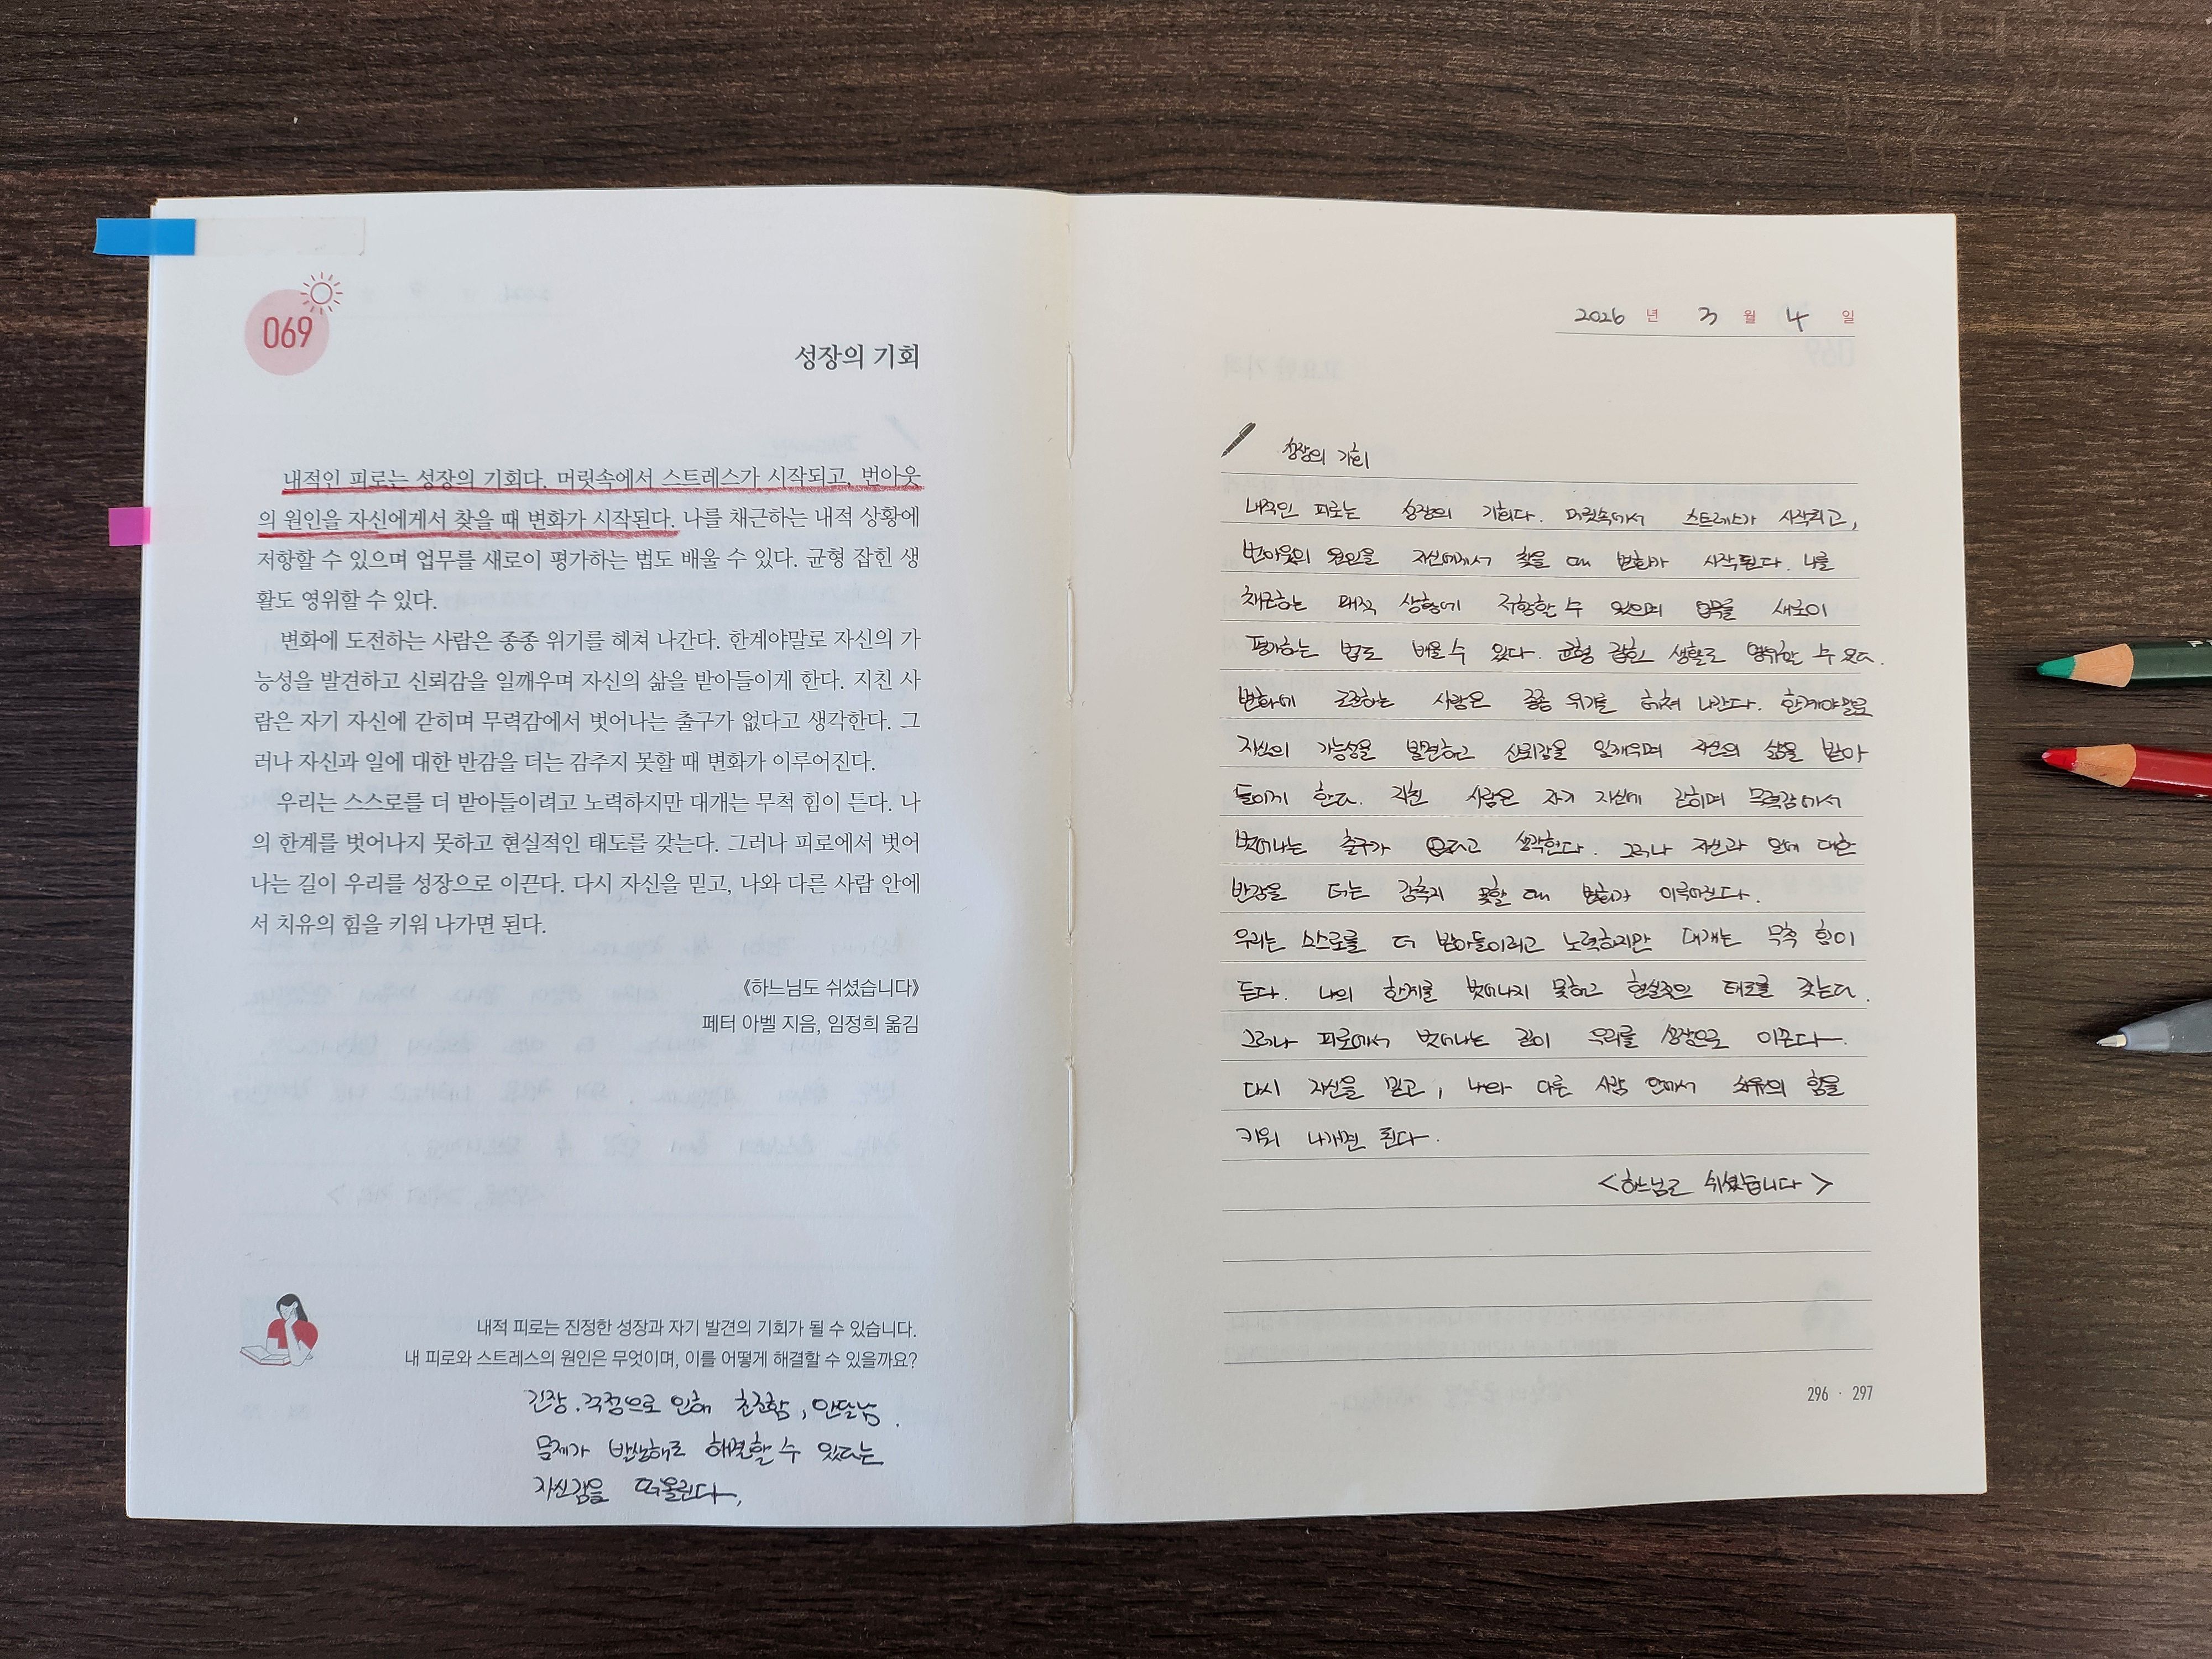 069
성장의 기회
내적인 피로는 성장의 기회다. 머릿속에서 스트레스가 시작되고, 번아웃
의 원인을 자신에게서 찾을 때 변화가 시작된다. 나를 채근하는 내적 상황에
저항할 수 있으며 업무를 새로이 평가하는 법도 배울 수 있다. 균형 잡힌 생
활도 영위할 수 있다.
변화에 도전하는 사람은 종종 위기를 헤쳐 나간다. 한계야말로 자신의 가
능성을 발견하고 신뢰감을 일깨우며 자신의 삶을 받아들이게 한다. 지친 사
람은 자기 자신에 갇히며 무력감에서 벗어나는 출구가 없다고 생각한다. 그
러나 자신과 일에 대한 반감을 더는 감추지 못할 때 변화가 이루어진다.
우리는 스스로를 더 받아들이려고 노력하지만 대개는 무척 힘이 든다. 나
의 한계를 벗어나지 못하고 현실적인 태도를 갖는다. 그러나 피로에서 벗어
나는 길이 우리를 성장으로 이끈다. 다시 자신을 믿고, 나와 다른 사람 안에
서 치유의 힘을 키워 나가면 된다.
《하느님도 쉬셨습니다》
페터 아벨 지음, 임정희 옮김
내적 피로는 진정한 성장과 자기 발견의 기회가 될 수 있습니다.
내 피로와 스트레스의 원인은 무엇이며, 이를 어떻게 해결할 수 있을까요?
긴장. 걱정으로 인해 초조함, 안달남.
문제가 발생해도 해결할 수 있다는
자신감을 떠올린다.
2026 년 3 월 4 일
성장의 기회
내적인 피로는 성장의 기회다. 머릿속에서 스트레스가 시작되고,
번아웃의 원인을 자신에게서 찾을 때 변화가 시작된다. 나를
채근하는 내적 상황에 저항할 수 있으며 업무를 새로이
평가하는 법도 배울 수 있다. 균형 잡힌 생활도 영위할 수 있다.
변화에 도전하는 사람은 종종 위기를 헤쳐 나간다. 한계야말로
자신의 가능성을 발견하고 신뢰감을 일깨우며 자신의 삶을 받아
들이게 한다. 지친 사람은 자기 자신에 갇히며 무력감에서
벗어나는 출구가 없다고 생각한다. 그러나 자신과 일에 대한
반감을 더는 감추지 못할 때 변화가 이루어진다.
우리는 스스로를 더 받아들이려고 노력하지만 대개는 무척 힘이
든다. 나의 한계를 벗어나지 못하고 현실적인 태도를 갖는다.
그러나 피로에서 벗어나는 길이 우리를 성장으로 이끈다.
다시 자신을 믿고, 나와 다른 사람 안에서 치유의 힘을
키워 나가면 된다.
<하느님도 쉬셨습니다>
296 · 297